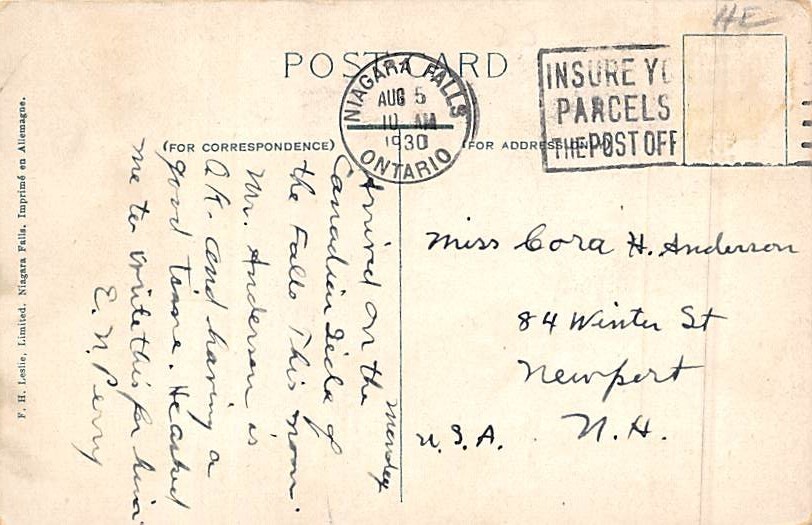 HE
POST CARD
NIAGARA FALLS
AUG 5
10 AM
1930
ONTARIO
INSURE YO
PARCELS
THE POST OFF
(FOR CORRESPONDENCE)
(FOR ADDRESS
Monday
Arrived on the
Canadian Side of
the Falls This noon.
Mr. Anderson is
O.K. and having a
good time. He asked
me to write this for him.
E. N. Perry
Miss Cora H. Anderson
84 Winter St
Newport
N. H.
U. S. A.
F. H. Leslie, Limited. Niagara Falls. Imprimé en Allemagne.